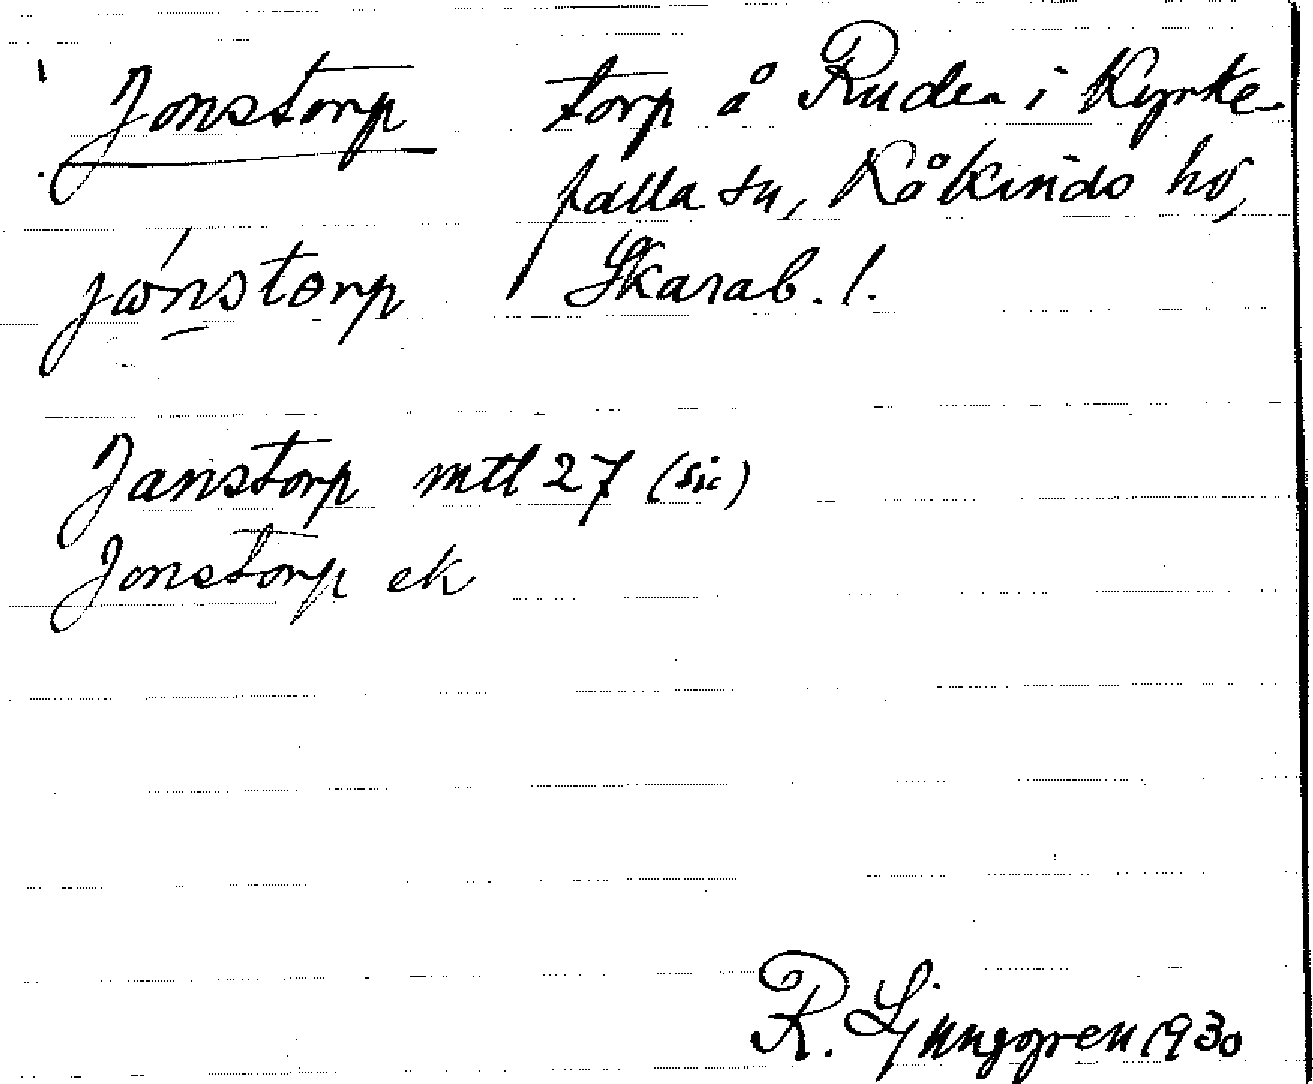 Jonstorp torp å Ruder i Kyrke
falla sn, Kåkinds hd,
jónstorp Skarab. l.
Janstorp mtl 27 (sic)
Jonstorp ek
R. Ljunggren 1930